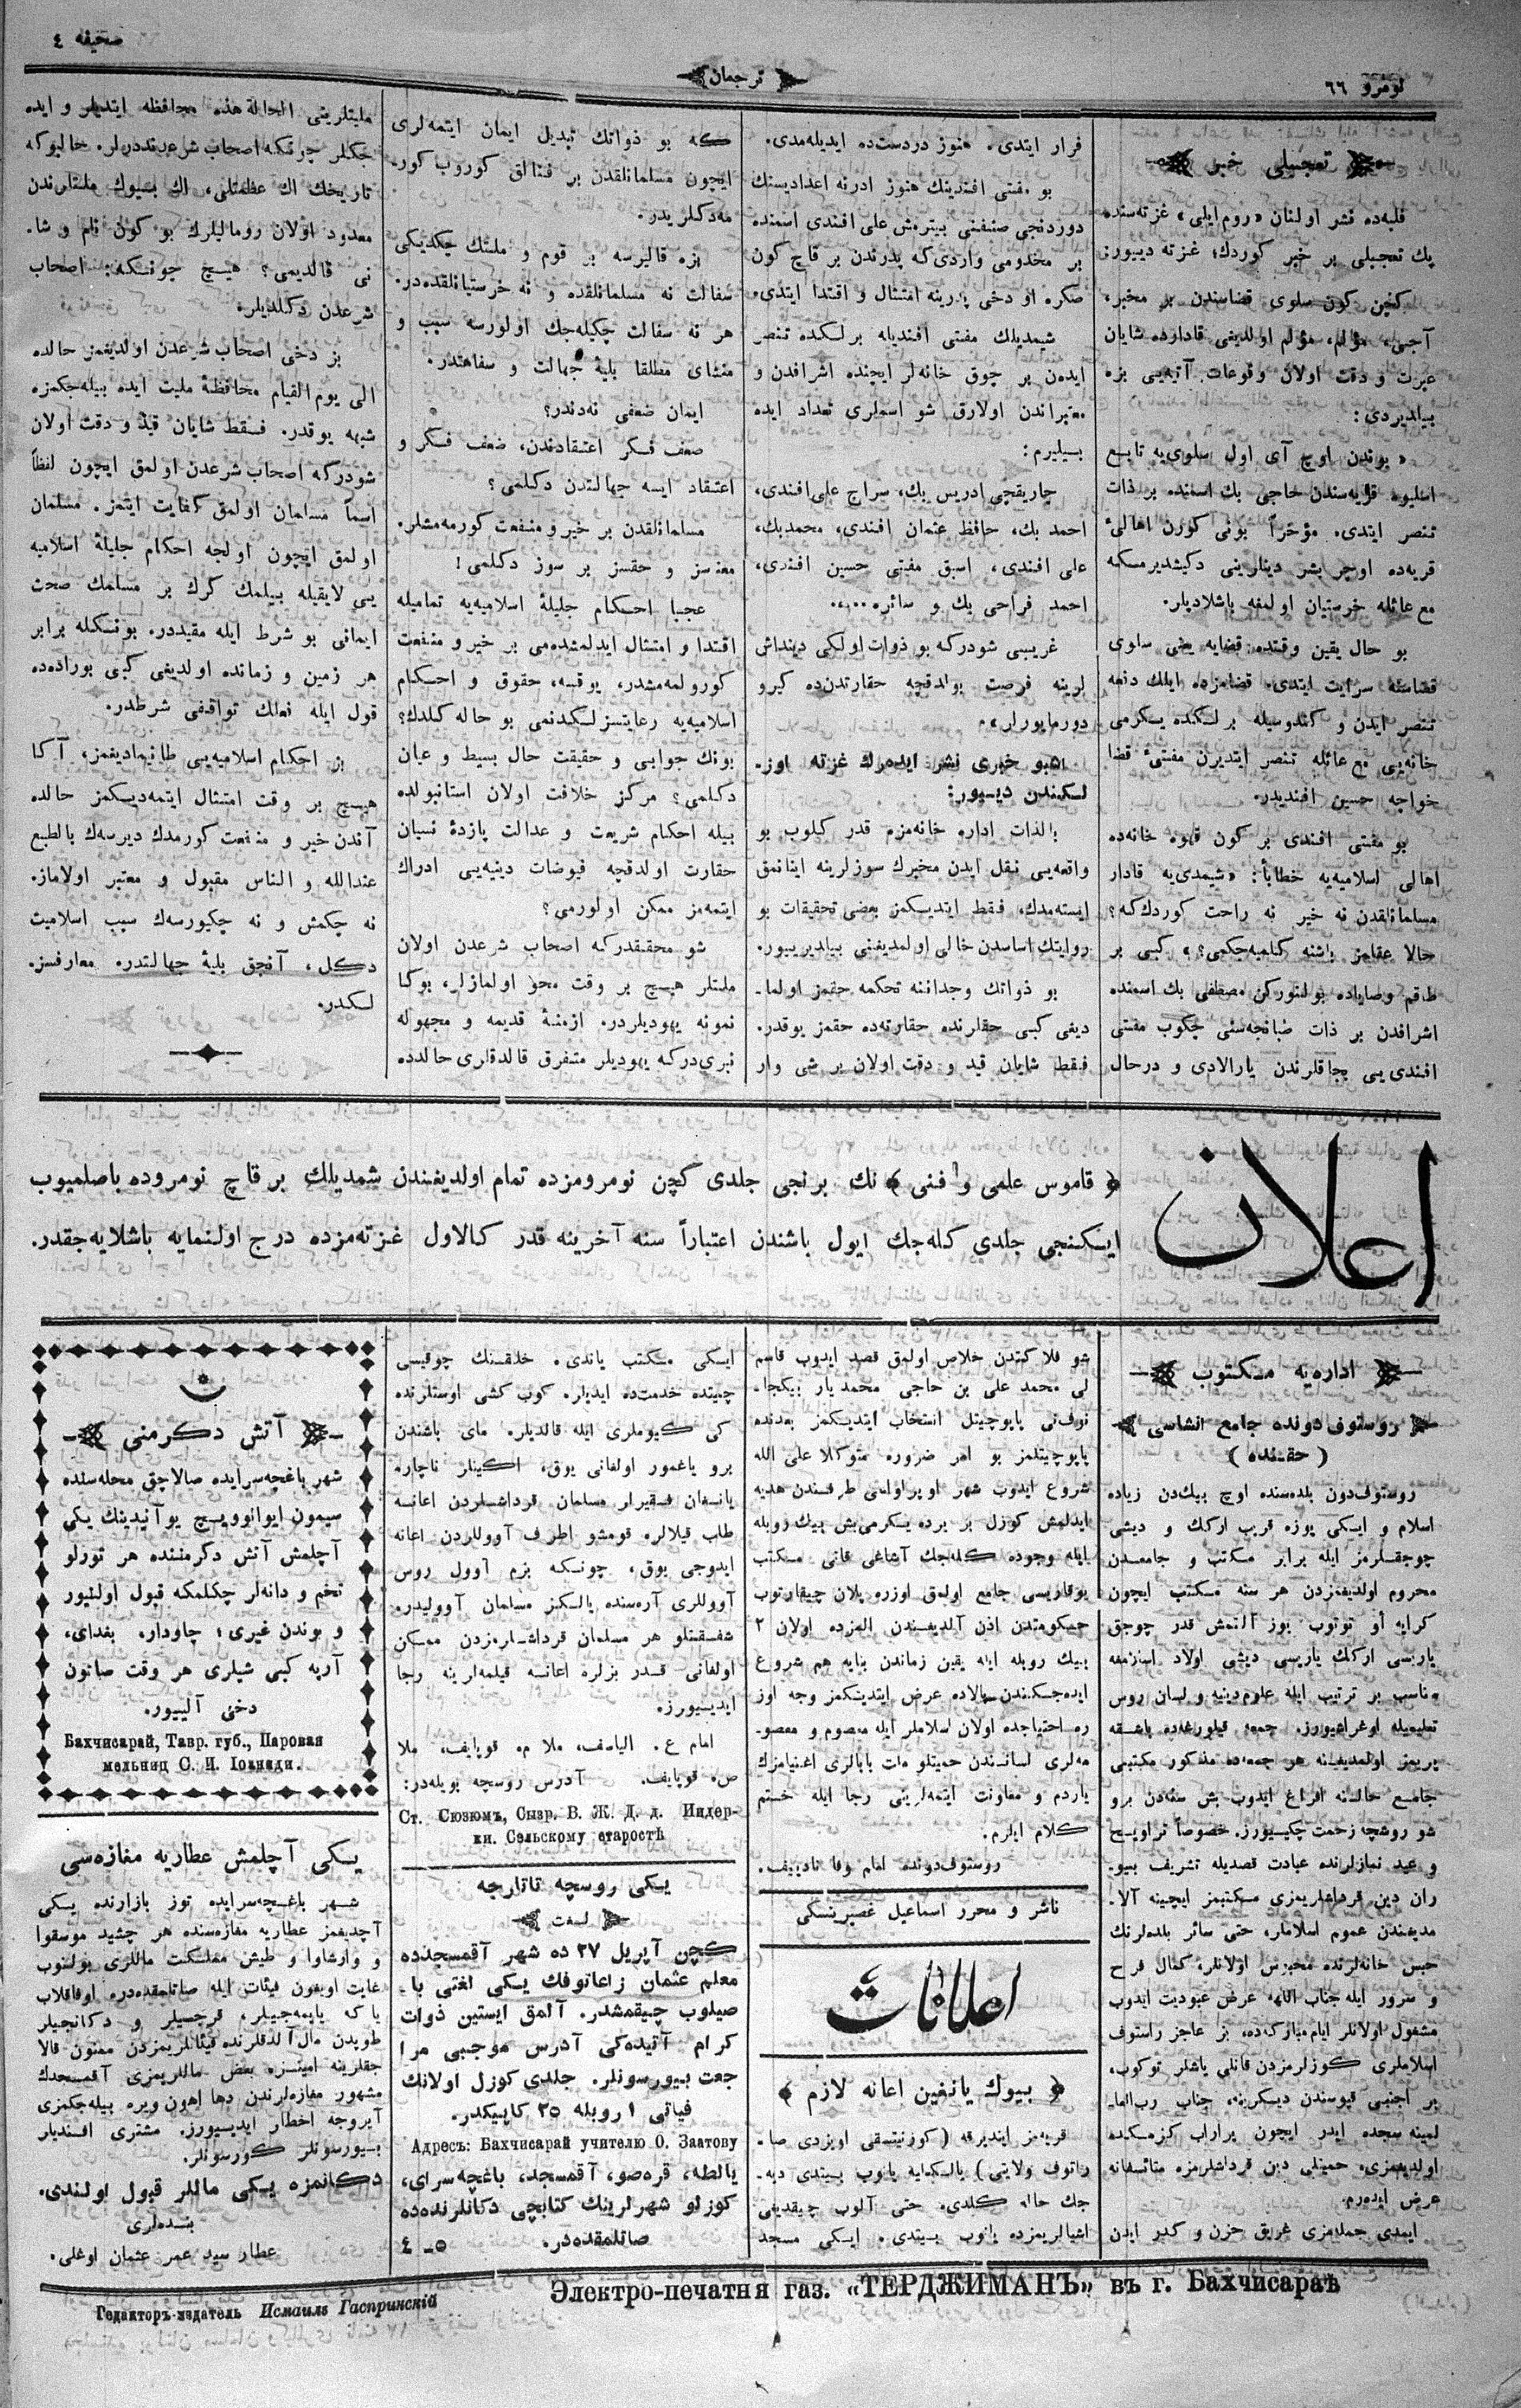 صحیفه ٤
ترجمان
نومرو ٦٦
تعجیلی خبر
فلبه‌ده نشر اولنان «روم ایلی» غزته‌سنده
پك تعجیلی بر خبر كوردك؛ غزته دییور:
كچن كون سلوی قضاسندن بر مخبر،
آجی، مؤلم، مؤلم اولدیغی قادارده شایان
عبرت و دقت اولان وقوعات آتیه‌یی بزه
بیلدیردی:
« بوندن اوچ آی اول سلوی‌یه تابع
قریه‌سندن حاجی بك اسمنده بر ذات
تنصر ایتدی. مؤخراً بونی كورن اهالئ
قریه‌ده اوچر بشر دینلرینی دكیشدیرمكه
مع عائله خرستیان اولمغه باشلادیلر.
بو حال یقین وقتده قضایه یعنی سلوی
قضاسنه سرایت ایتدی. قضامزده ایلك دفعه
تنصر ایدن و كندوسیله برلكده یكرمی
خانه‌یی مع عائله تنصر ایتدیرن مفتئ قضا
خواجه حسین افندیدر.
بو مفتی افندی بر كون قهوه خانه‌ده
اهالی اسلامیه‌یه خطاباً: «شیمدی‌یه قادار
مسلمانلقدن نه خیر نه راحت كوردك‌كه؟
حالا عقلمز باشنه كلمیه‌جكمی؟» كبی بر
طاقم وصایاده بولنوركن مصطفی بك اسمنده
اشرافدن بر ذات طبانجه‌سنی چكوب مفتی
افندی‌یی بجاقلرندن یارالادی و درحال
فرار ایتدی. هنوز دردست‌ده ایدیله‌مدی.
بو مفتی افندینك هنوز ادرنه اعدادیسنك
دوردنجی صنفنی بیترمش علی افندی اسمنده
بر مخدومی واردی‌كه پدرندن بر قاچ كون
صكره او دخی پدرینه امتثال و اقتدا ایتدی.
شیمدیلك مفتی افندیله برلكده تنصر
ایدن بر چوق خانه‌لر ایچنده اشرافدن و
معتبراندن اولارق شو اسملری تعداد ایده
بیلیرم:
چاریقچی ادریس بك، سراج علی افندی،
احمد بك، حافظ عثمان افندی، محمد بك،
علی افندی، اسبق مفتی حسین افندی،
احمد فراحی بك و سائره.....
غریبی شودركه بو ذوات اولكی دینداش
لرینه فرصت بولدقچه حقارتدن‌ده كیرو
دورمایورلر».
اشبو خبری نشر ایده‌رك غزته اوز-
لكندن دییور:
بالذات اداره خانه‌مزه قدر كلوب بو
واقعه‌یی نقل ایدن مخبرك سوزلرینه اینانمق
ایسته‌مدك، فقط ایتدیكمز بعضی تحقیقات بو
روایتك اساسدن خالی اولمدیغنی بیلدیریبور.
بو ذواتك وجداننه تحكمه حقمز اولما-
دیغی كبی حقلرنده حقارته‌ده حقمز یوقدر.
فقط شایان قید و دقت اولان بر شی وار
كه بو ذواتك تبدیل ایمان ایتمه‌لری
ایچون مسلمانلقدن بر فنالق كوروب كور.
مه‌دكلریدر.
بزه قالیرسه بر قوم و ملتك چكدیكی
سفالت نه مسلمانلقده و نه خرستیانلقده‌در.
هر نه سفالت چكیله‌جك اولورسه سبب و
منشای مطلقا بلیهٔ جهالت و سفاهتدر.
ایمان ضعفی نه‌دندر؟
ضعف فكر اعتقاددندن، ضعف فكر و
اعتقاد ایسه جهالتدن دكلمی؟
مسلمانلقدن بر خیر و منفعت كورمه‌مشلر.
معنسز و حقسز بر سوز دكلمی!
عجبا احكام جلیلهٔ اسلامیه‌یه تمامیله
اقتدا و امتثال ایدلمشده‌می بر خیر و منفعت
كورولمه‌مشدر، یوقسه، حقوق و احكام
اسلامیه‌یه رعایتسزلكدنمی بو حاله كلدك؟
بونك جوابی و حقیقت حال بسیط و عیان
دكلمی؟ مركز خلافت اولان استانبولده
بیله احكام شریعت و عدالت پازدهٔ نسیان
حقارت اولدقچه فیوضات دینیه‌یی ادراك
ایتمه‌مز ممكن اولورمی؟
شو محققدركه اصحاب شرعدن اولان
ملتلر هیچ بر وقت محو اولمازلر، بوكا
نمونه یهودیلردر. ازمنهٔ قدیمه و مجهوله
نبری‌دركه یهودیلر متفرق قالدقلری حالده
ملیتلرینی الحالة هذه محافظه ایتدیلر و ایده
جكلر چونكه اصحاب شرعدندرلر. حالبوكه
تاریخك اك عظمتلی، اك بیوك ملتلرندن
معدود اولان رومالیلرك بو كون نام و شا-
نی قالدیمی؟ هیچ چونكه: اصحاب
شرعدن دكلدیلر.
بز دخی اصحاب شرعدن اولدیغمز حالده
الی یوم القیام محافظهٔ ملیت ایده بیله‌جكمزه
شبهه یوقدر. فقط شایان قید و دقت اولان
شودركه اصحاب شرعدن اولمق ایچون لفظاً
اسماً مسلمان اولمق كفایت ایتمز. مسلمان
اولمق ایچون اولجه احكام جلیلهٔ اسلامیه
یی لایقیله بیلمك كرك بر مسلمك صحت
ایمانی بو شرط ایله مقیددر. بونكله برابر
هر زمین و زمانده اولدیغی كبی بوراده‌ده
قول ایله فعلك توافقی شرطدر.
بز احكام اسلامیه‌یی طانیمادیغمز، آكا
هیچ بر وقت امتثال ایتمه‌دیكمز حالده
آندن خیر و منفعت كورمدك دیرسه‌ك بالطبع
عندالله و الناس مقبول و معتبر اولاماز.
نه چكمش و نه چكیورسه‌ك سبب اسلامیت
دكل، آنجق بلیهٔ جهالتدر. معارفسز-
لكدر.
اعلان
﴿ قاموس علمی و فنی ﴾ نك برنجی جلدی كچن نومرومزده تمام اولدیغندن شمدیلك بر قاچ نومروده باصلمیوب
ایكنجی جلدی كله‌جك ایول باشندن اعتباراً سنه آخرینه قدر كالاول غزته‌مزده درج اولنمایه باشلایه‌جقدر.
اداره‌یه مكتوب
روستوف دونده جامع انشاسی
( حقنده )
روستوف‌دون بلده‌سنده اوچ بیك‌دن زیاده
اسلام و ایكی یوزه قریب ارکك و دیشی
چوجقلرمز ایله برابر مكتب و جامعدن
محروم اولدیغمزدن هر سنه مكتب ایچون
كرایه أو توتوب یوز آلتمش قدر چوجق
یاریسی ارکك یاریسی دیشی اولاد
مناسب بر ترتیب ایله علوم دینیه و لسان روس
تعلیمیله اوغراشیورز. جمعه قیلورغه‌ده باشقه
یریمز اولمدیغنه هر جمعه‌ده مذكور مكتبی
جامع حالنه افراغ ایدوب بش سنه‌دن برو
شو روشچه زحمت چكیورز. خصوصاً تراویح
و عید نمازلرنده عبادت قصدیله تشریف بیو-
ران دین قرداشلریمزی مكتبمز ایچینه آلا-
مدیغندن عموم اسلاملر، حتی سائر بلده‌لرنك
حبس خانه‌لرنده محبوس اولانلر، كمال فرح
و سرور ایله جناب اللهه عرض عبودیت ایدوب
مشغول اولانلر ایام مباركه‌ده، بز عاجز راستوف
اسلاملری كوزلرمزدن قانلی یاشلر توكوب،
بر اجنبی قپوسندن دیكرینه، جناب رب العا-
لمینه سجده ایدر ایچون یراراب كزمكده
اولدیغمزی. حمیتلی دین قرداشلرمزه متأسفانه
عرض ایده‌رم.
ایمدی جمله‌مزی غریق حزن و كدر ایدن
شو فلاكتدن خلاص اولمق قصد ایدوب قاسم
لی محمد علی بن حاجی محمد یار بیكجا-
نوف‌نی پاپوچیتل انتخاب ایتدیكمز بعدنده
پاپوچیتلمز بو امر ضروره متوكلا علی الله
شروع ایدوب شهر اوپراولمی طرفندن هدیه
ایدلمش كوزل بر یرده یكرمی‌بش بیك روبله
ایله وجوده كله‌جك آشاغی قاتی مكتب
یوقاریسی جامع اولمق اوزره پلان چیقارتوب
حكومتدن اذن آلدیغندن المزده اولان ٢
بیك روبله ایله یقین زماندن بنایه هم شروع
ایده‌جكندن بالاده عرض ایتدیكمز وجه اوز
ره احتیاجده اولان اسلاملر ایله معصوم و معصو-
مه‌لری لسانندن حمیتلو ملت بابالری اغنیامزك
یاردم و معاونت ایتمه‌لرینی رجا ایله ختم
كلام ایلرم.
روستوف‌دونده امام وفا نادییف.
ناشر و محرر اسماعیل غصپرینسكی
اعلانات
﴿ بیوك یانغین اعانه لازم ﴾
قریه‌مز ایندیرقه (كوزنیتسقی اویزدی صا-
راتوف ولایتی) بالكلیه یانوب بیتدی دیه-
جك حاله كلدی. حتی آلوب چیقدیغی
اشیالریمزده یانوب بیتدی. ایكی مسجد
ایكی مكتب یاندی. خلقنك چوقیسی
چیتده خدمت‌ده ایدیلر. كوب كشی اوستلرنده
كی كیوملری ایله قالدیلر. مای باشندن
برو یاغمور اولغانی یوق، اكینلر ناچار.
یانغان فقیرلر مسلمان قرداشلردن اعانه
طلب قیلالر. قومشو اطرف آووللردن اعانه
ایدوجی یوق، چونكه بزم آوول روس
آووللری آره‌سنده یالكز مسلمان آوولیدر.
شفقتلو هر مسلمان قرداشلرمزدن ممكن
اولغانی قدر بزلره اعانه قیلمه‌لرینه رجا
ایدیورز.
امام ع. الیاسف، ملا م. قوپایف، ملا
ص. قوپایف. آدرس روسچه بویله‌در:
Ст. Сюзюмъ, Сызр. В. Ж. Д. д. Индер-
ки. Сельскому старостѣ
یكی روسچه تاتارجه
لغت
كچن آپریل ٢٧ ده شهر آقمسجدده
معلم عثمان زاعاتوفك یكی لغتی با-
صیلوب چیقمشدر. آلمق ایستین ذوات
كرام آتیده‌كی آدرس موجبی مرا
جعت بیورسونلر. جلدی كوزل اولانك
فیاتی ١ روبله ٢٥ كاپیكدر.
Адресъ: Бахчисарай учителю О. Заатову
یالطه، قره‌صو، آقمسجد، باغچه‌سرای،
كوزلو شهرلرینك كتابچی دكانلرنده‌ده
صاتلمقده‌در. ٥-٤
آتش دكرمنی
شهر باغچه‌سرایده صالاچق محله‌سنده
سیمون ایوانوویچ یوآنیدینك یكی
آچلمش آتش دكرمننده هر تورلو
تخم و دانه‌لر چكلمكه قبول اولنیور
و بوندن غیری؛ چاودار، بغدای،
آرپه كبی شیلری هر وقت صاتون
دخی آلییور.
Бахчисарай, Тавр. губ., Паровая
мельниц С. И. Іоаниди.
یكی آچلمش عطاریه مغازه‌سی
شهر باغچه‌سرایده توز بازارنده یكی
آچدیغمز عطاریه مغازه‌سنده هر چشید موسقوا
و وارشاوا و طیش مملكت ماللری بولنوب
غایت اویغون فیئات ایله صاتلمقده‌در. اوفاقلاب
یا كه پایمه‌جیلر، قرجیلر و دكانجیلر
طوپدن مال آلدقلرنده فیئاتلریمزدن ممنون قالا
جقلرینه امینز. بعض ماللریمزی آقمسجدك
مشهور مغازه‌لرندن دها اهون ویره بیله‌جكمزی
آیروجه اخطار ایدیورز. مشتری افندیلر
بیورسونلر كورسونلر.
دكانمزه یكی ماللر قبول اولندی.
بنده‌لری
عطار سید عمر عثمان اوغلی.
Электро-печатня газ. «ТЕРДЖИМАНЪ» въ г. Бахчисараѣ
Редакторъ-издатель Исмаилъ Гаспринскій